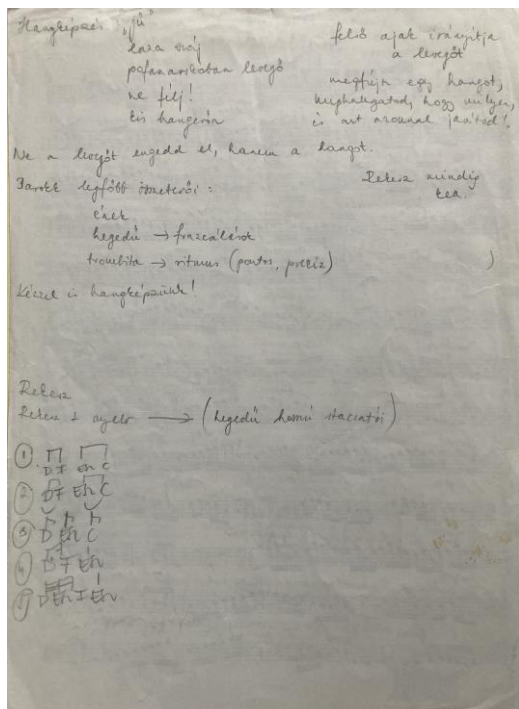 Hangképzés: "jü"
laza száj
pofazacskóban levegő
ne félj!
kis hangerőn
felső ajak irányítja
a levegőt
megfújn egy hangot,
meghallgatod, hogy milyen,
is azt azonnal javítod!
Ne a levegőt engedd el, hanem a hangot.
Rekesz mindig
kea.
Barokk legfőbb összetevői:
ének
hegedű → frazeálások
trombita → ritmus (pontos, precíz)
Kézzel is hangképzünk!
Rekesz
Rekesz + nyelv → (hegedű hosszú staccatói)
① D F Eh C
② D F Eh C
③ D Eh C
④ D F Eh
⑤ D Eh F Eh